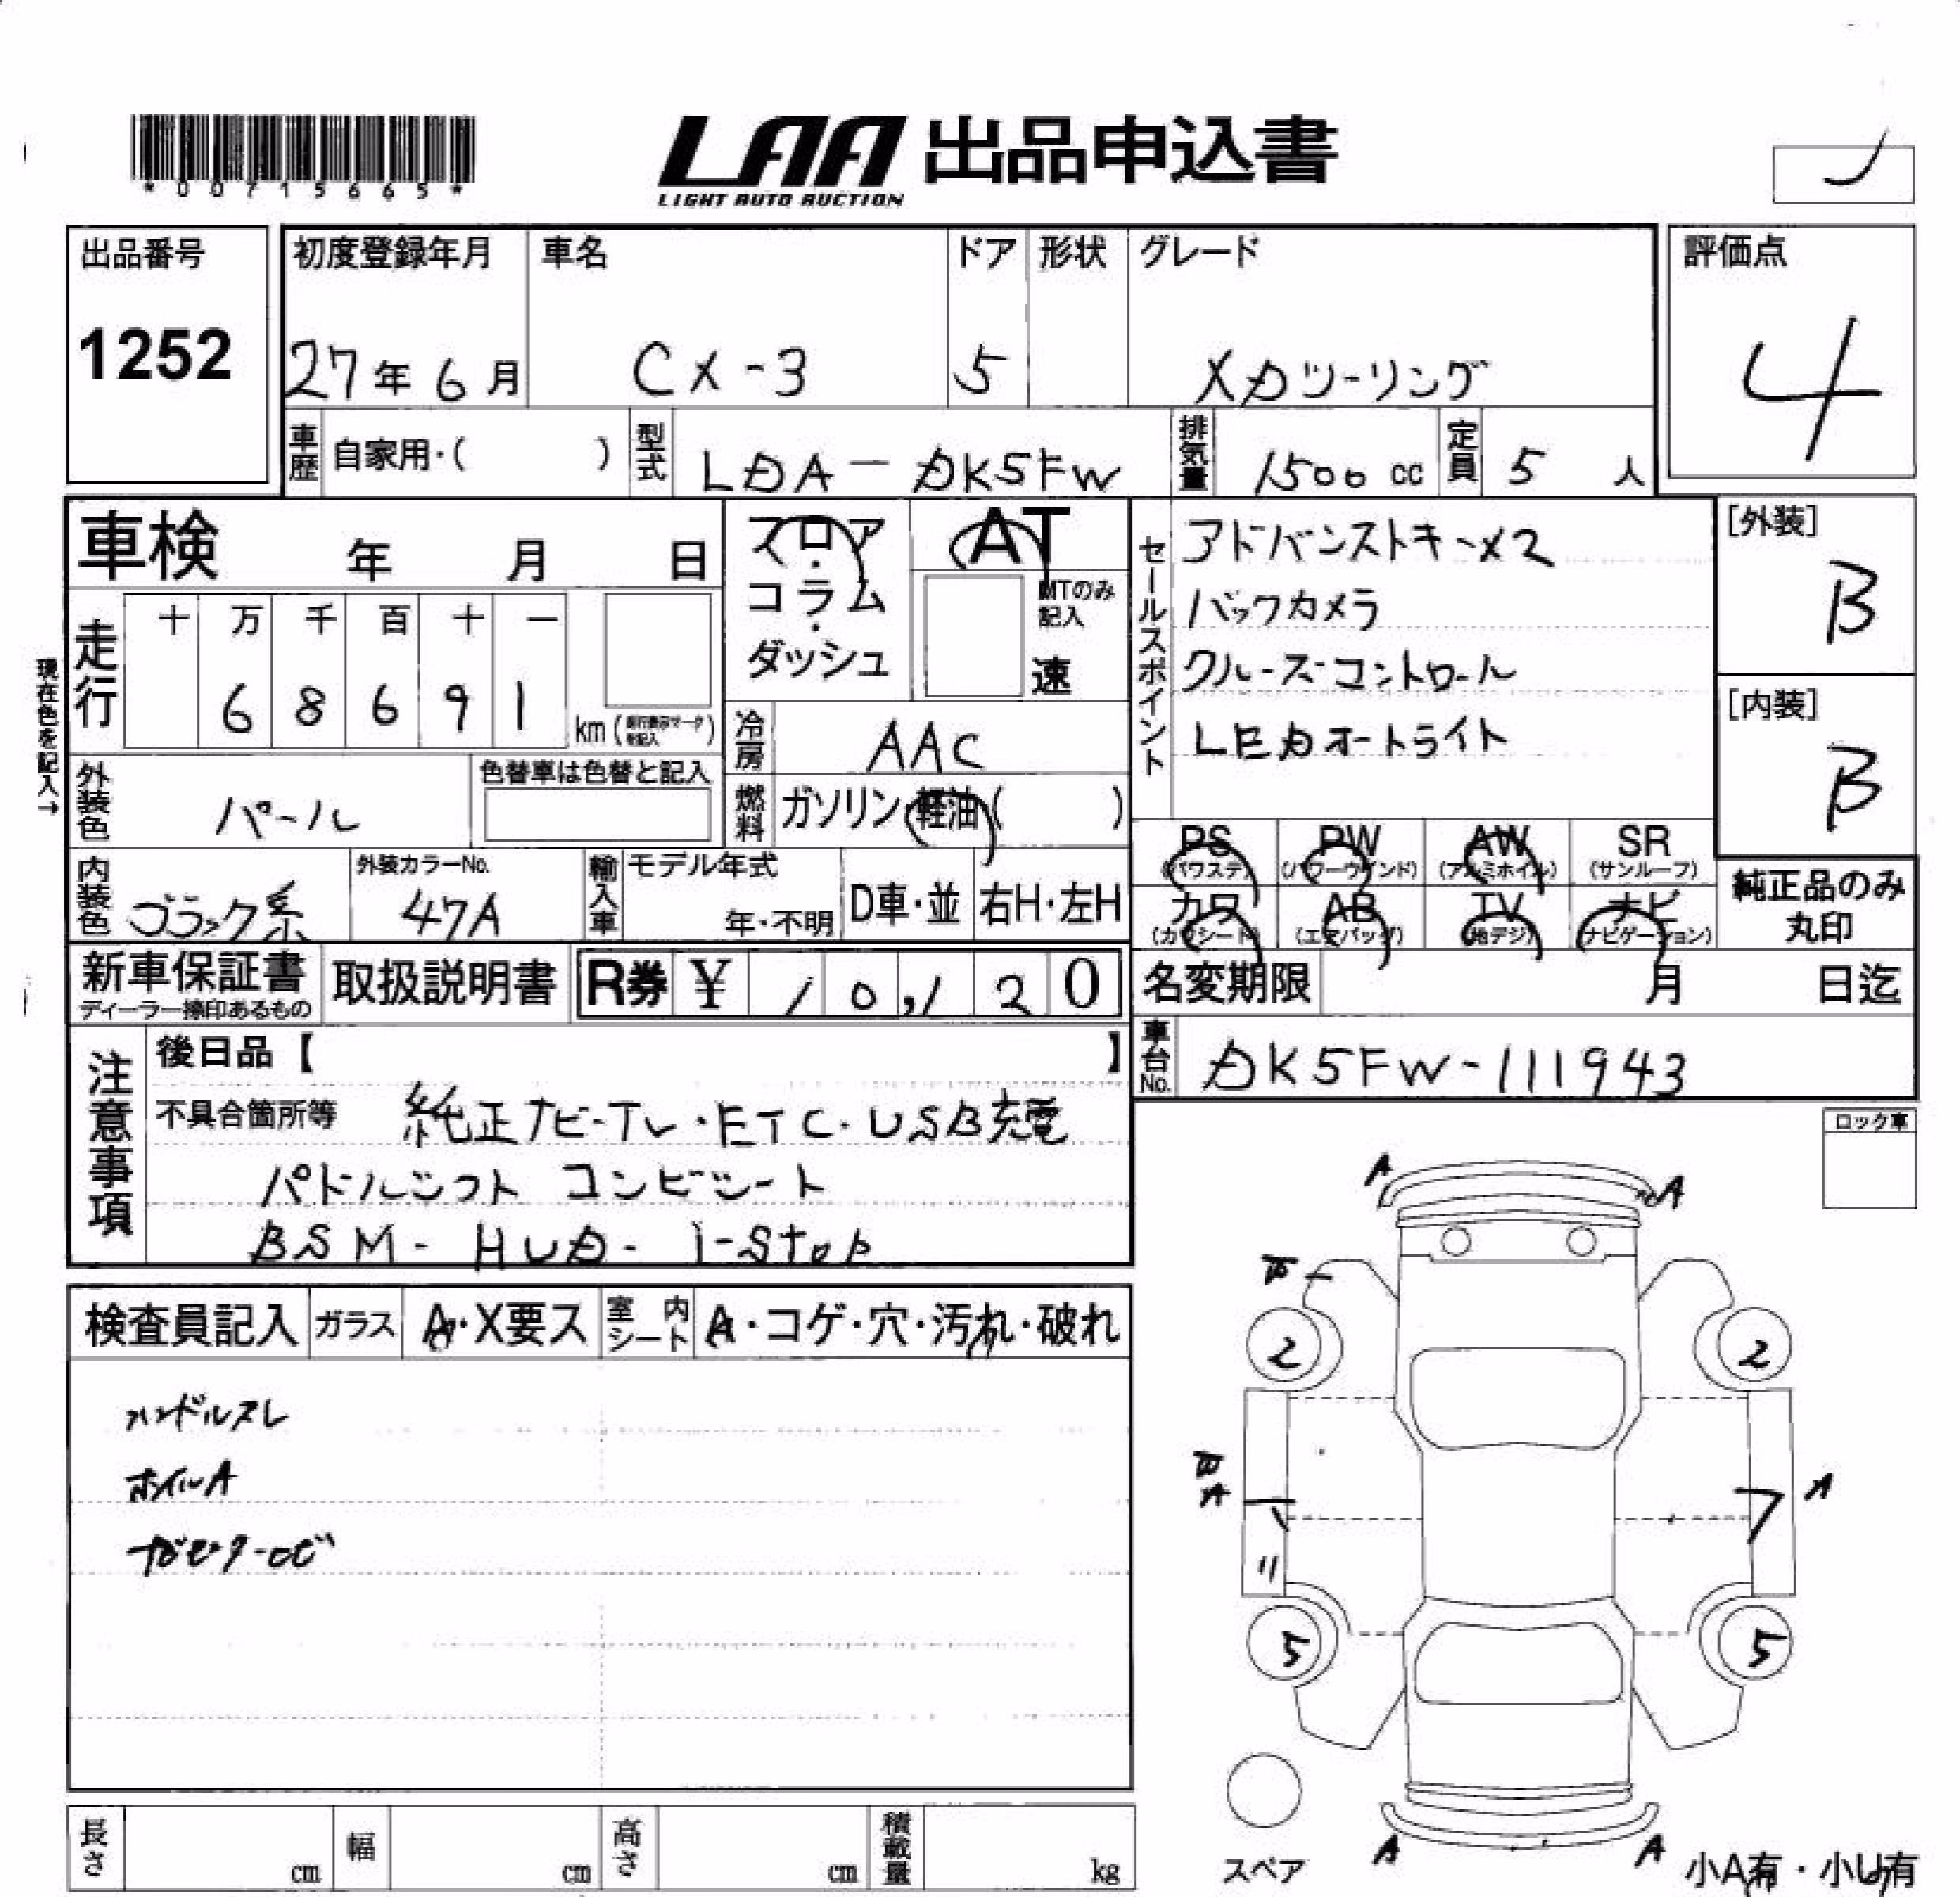 *00715665*
LAA 出品申込書
LIGHT AUTO AUCTION
出品番号 初度登録年月 車名 ドア 形状 グレード 評価点
1252 27年6月 CX-3 5 XDツーリング 4
車歴 自家用・( ) 型式 LDA-DK5FW 排気量 1500cc 定員 5人
車検 年 月 日
フロア・コラム・ダッシュ
AT
MTのみ記入
速
セールスポイント
アドバンストキーX2
バックカメラ
クルーズコントロール
LEDオートライト
[外装]
B
[内装]
B
現在色を記入→
走行 十 万 千 百 十 一
6 8 6 9 1 km
冷房 AAC
外装色 パール 色替車は色替と記入
燃料 ガソリン・軽油( )
PS PW AW SR
(パワステ) (パワーウインド) (アルミホイル) (サンルーフ)
カワ AB TV ナビ
(カワシート) (エアバッグ) (地デジ) (ナビゲーション)
純正品のみ
丸印
内装色 ブラック系 外装カラーNo. 47A 輸入車 モデル年式 年・不明 D車・並 右H・左H
新車保証書 取扱説明書 R券 ¥ 10,120
ディーラー捺印あるもの
名変期限 月 日迄
車台No. DK5FW-111943
注意事項
後日品【 】
不具合箇所等 純正ナビ-TV・ETC・USB充電
パドルシフト コンビシート
BSM- HUD- i-stop
ロック車
検査員記入 ガラス A・X要ス 室内シート A・コゲ・穴・汚れ・破れ
ハンドルスレ
ホイルA
A A
2 2
A A
5 5
A A
スペア
小A有・小U有
長さ cm 幅 cm 高さ cm 積載量 kg